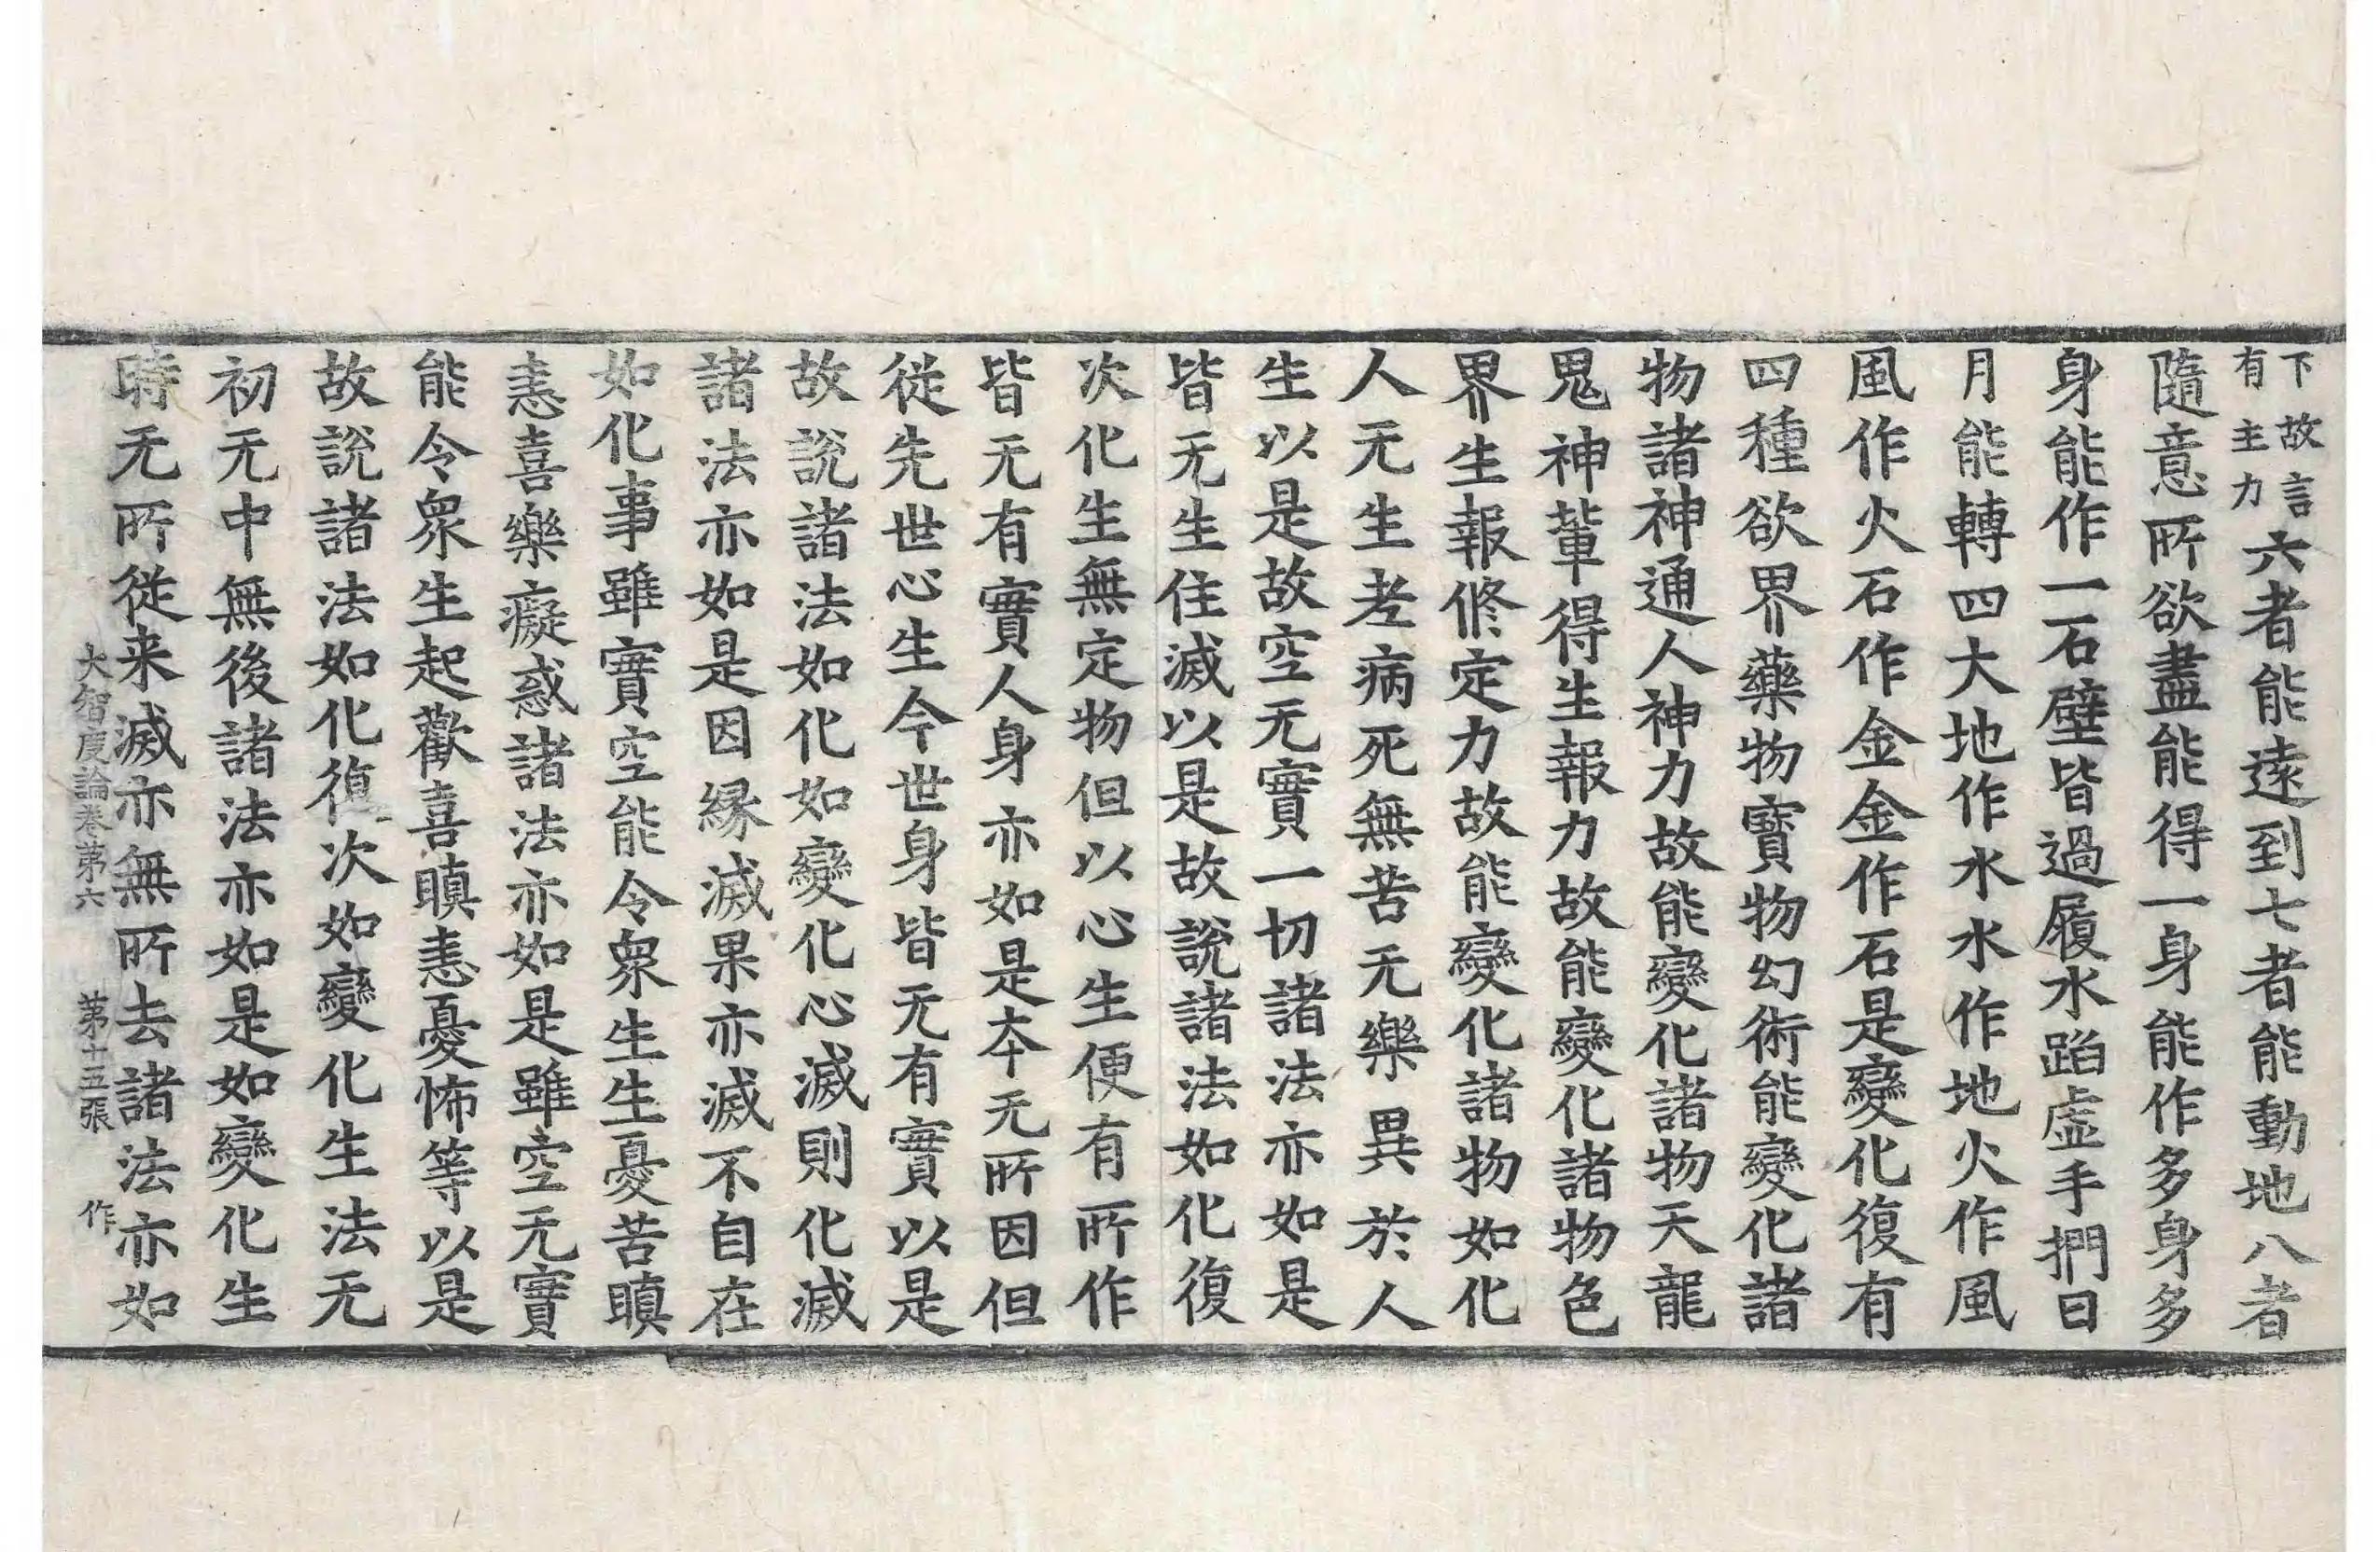 下故言
有主力
六者能遠到七者能動地八者
隨意所欲盡能得一身能作多身多
身能作一石壁皆過履水蹈虛手捫日
月能轉四大地作水水作地火作風
風作火石作金金作石是變化復有
四種欲界藥物寶物幻術能變化諸
物諸神通人神力故能變化諸物天龍
鬼神輩得生報力故能變化諸物色
界生報修定力故能變化諸物如化
人无生老病死無苦无樂異於人
生以是故空无實一切諸法亦如是
皆无生住滅以是故說諸法如化復
次化生無定物但以心生便有所作
皆无有實人身亦如是本无所因但
從先世心生今世身皆无有實以是
故說諸法如化如變化心滅則化滅
諸法亦如是因緣滅果亦滅不自在
如化事雖實空能令衆生生憂苦瞋
恚喜樂癡惑諸法亦如是雖空无實
能令衆生起歡喜瞋恚憂怖等以是
故說諸法如化復次如變化生法无
初无中無後諸法亦如是如變化生
時无所從来滅亦無所去諸法亦如
大智度論卷第六 第十五張 作